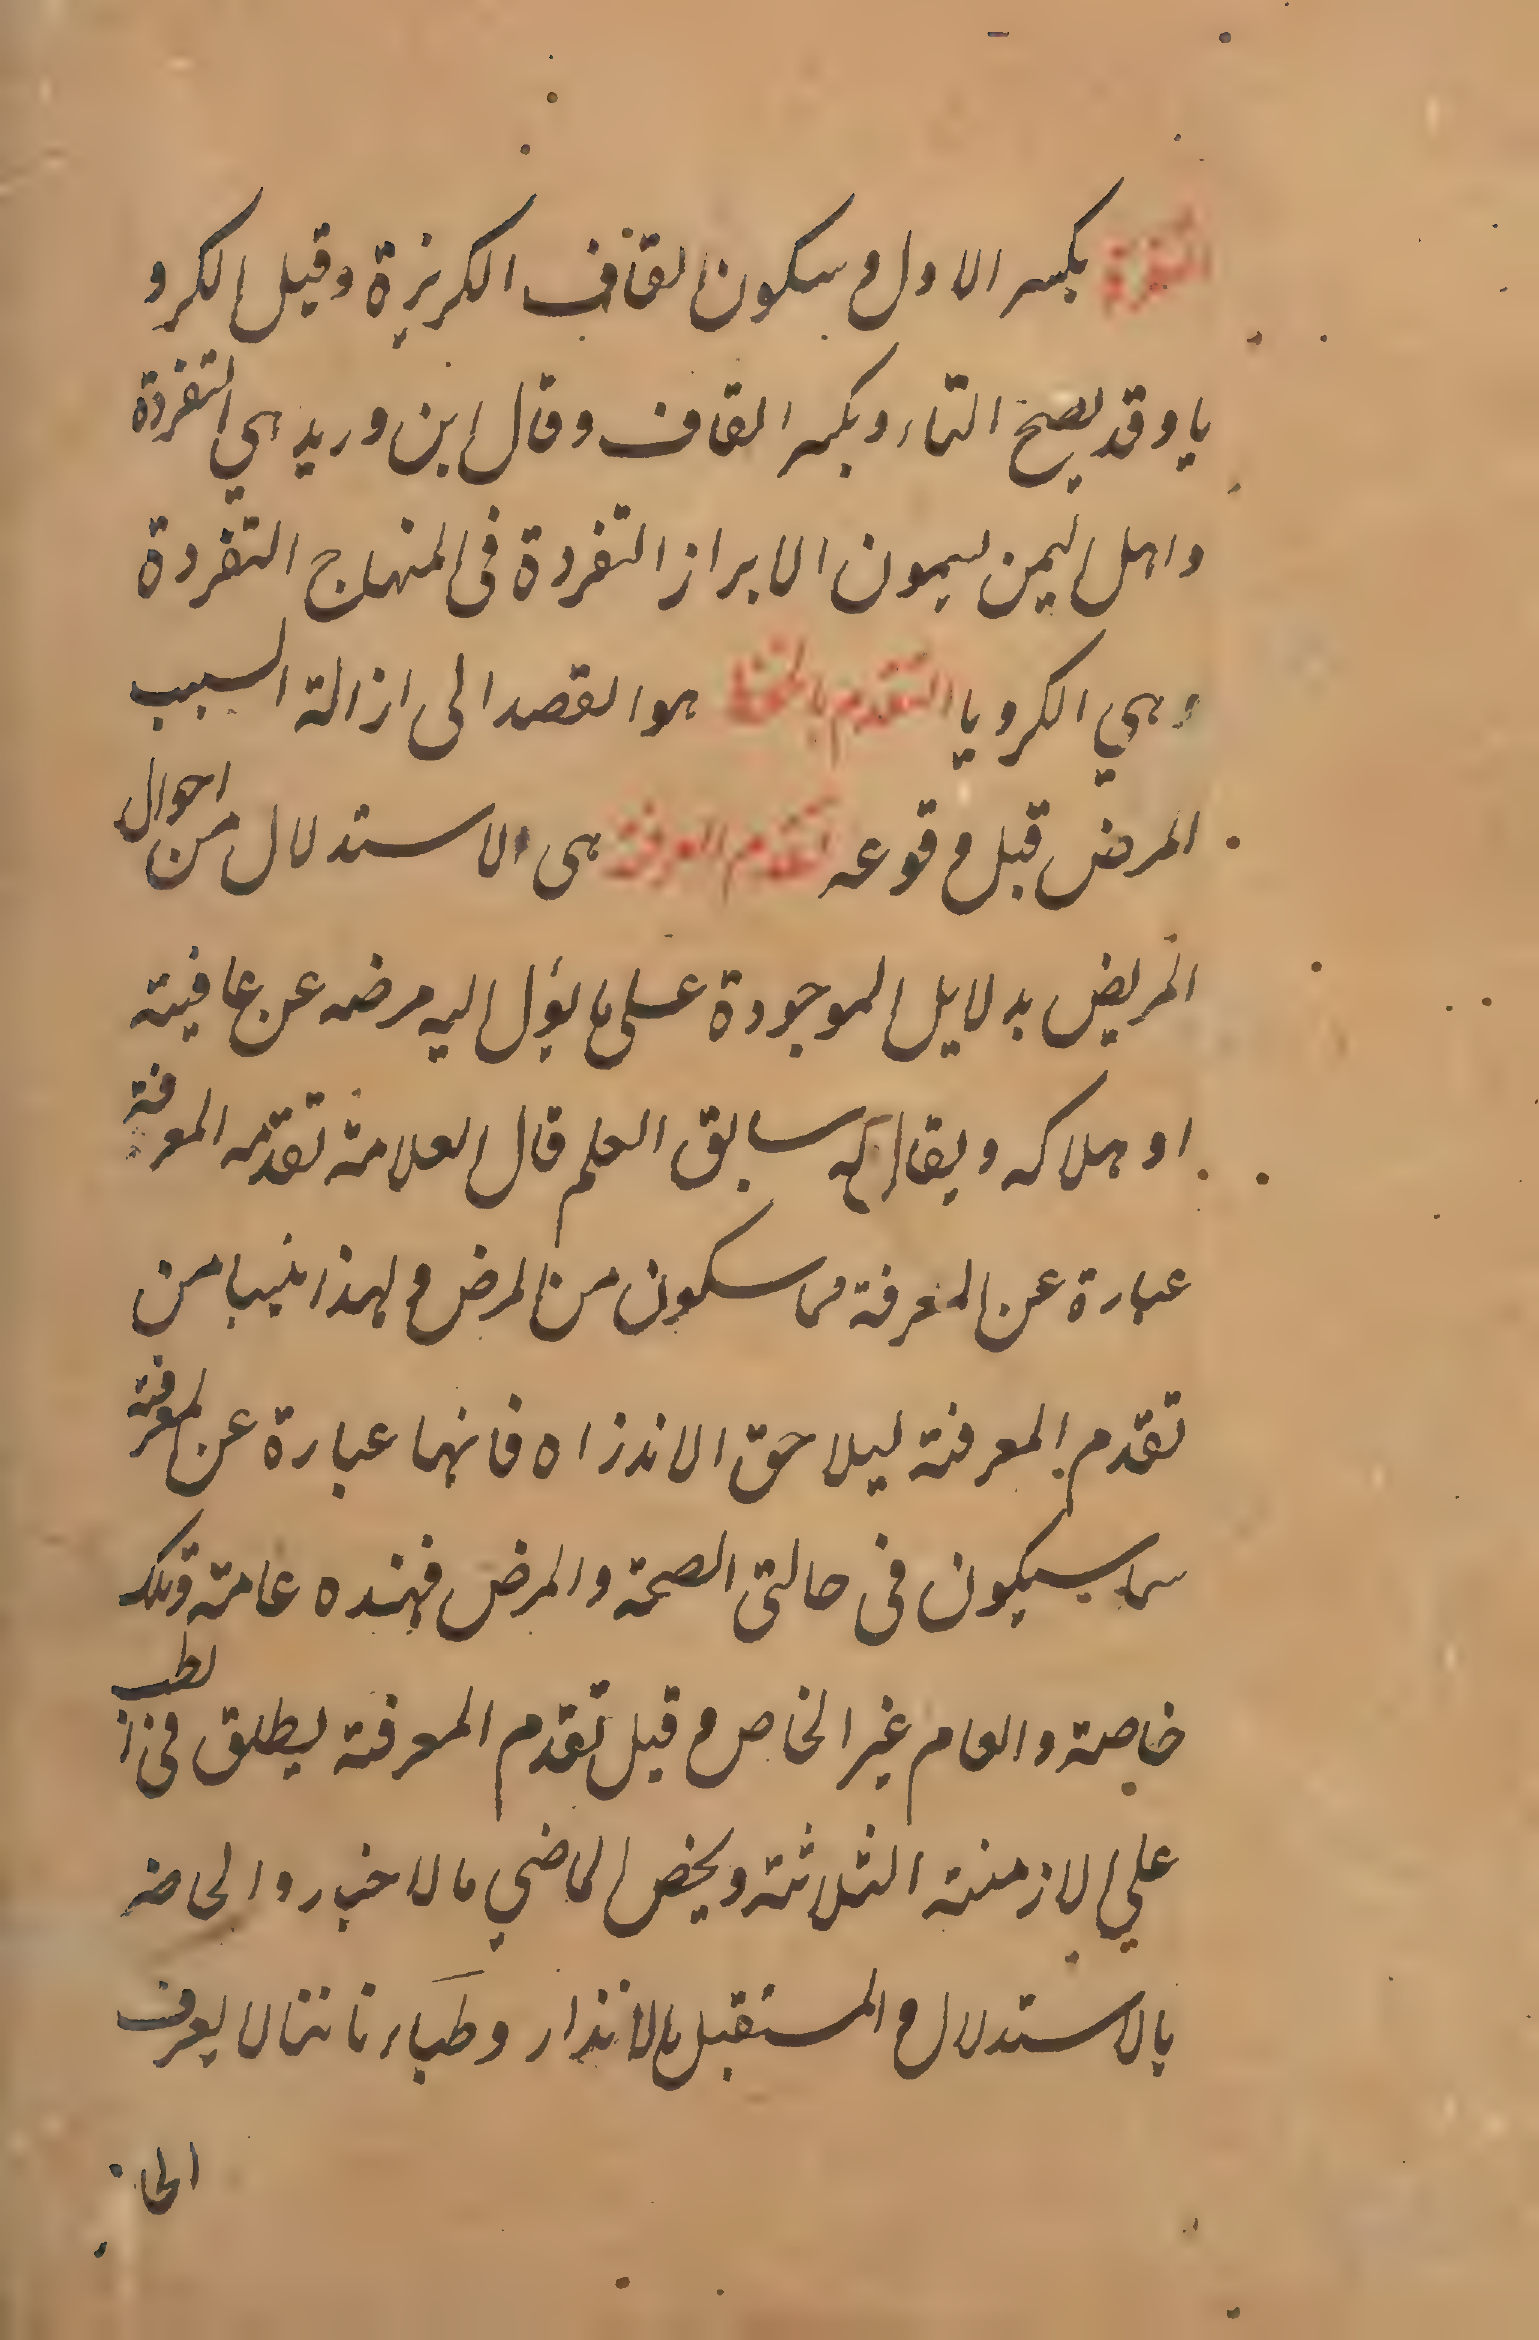 التقرة بكسر الاول وسكون القاف الكريزة وقيل الكرو
يا وقد يصح التاء وبكسر القاف وقال ابن وريد هي التقردة
واهل اليمن ليسمون الابراز التقردة فى المنهاج التقردة
وهي الكرويا التقدم بالحفظ هو القصد الى ازالة السبب
المرض قبل وقوعه تقدم المعرفة هى الاستدلال من احوال
المريض بدلايل الموجودة على ما يؤل اليه مرضه عن عافيته
او هلاكه ويقال له سابق العلم قال العلامة تقدمه المعرفة
عبارة عن المعرفة مما سكون من المرض ولهذا من
تقدم المعرفة ليلاحق الانذراه فانها عبارة عن المعرفة
سيكون فى حالتى الصحة والمرض فهذه عامة وتلك
خاصة والعام غير الخاص وقبل تقدم المعرفة يطلق فى لطب
علي الازمنة الثلاثة ويخص الماضي مالاخبار والحاضر
بالاستدلال والمستقبل بالانذار وطباء زماننا لا يعرف
الحا